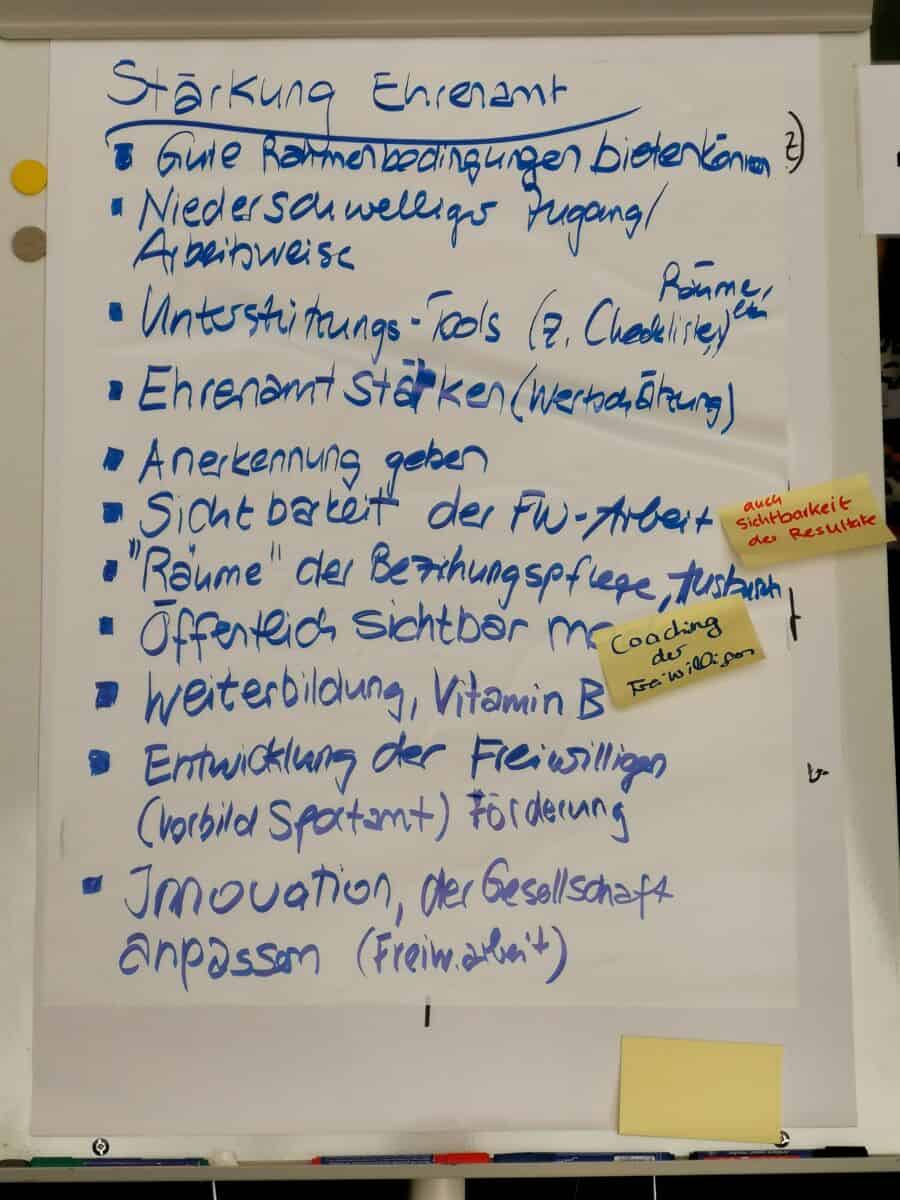 Stärkung Ehrenamt
▪ Gute Rahmenbedingungen bieten können
▪ Niederschwelliger Zugang/
Arbeitsweise
Räume,
▪ Unterstützungs-Tools (z. Checklisten)
▪ Ehrenamt Stärken (Wertschätzung)
▪ Anerkennung geben
▪ Sichtbarkeit der FW-Arbeit
auch
Sichtbarkeit
der Resultate
▪ "Räume" der Beziehungspflege, Austausch
▪ Öffentlich sichtbar
Coaching
der
Freiwilligen
▪ Weiterbildung, Vitamin B
▪ Entwicklung der Freiwilligen
(Vorbild Sportamt) Förderung
▪ Innovation, der Gesellschaft
anpassen (Freiw.arbeit)